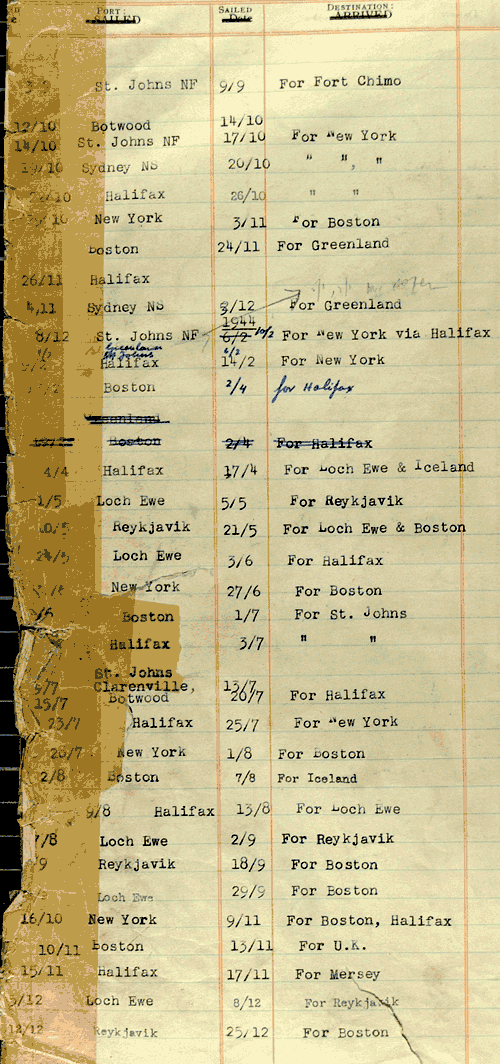 PORT: SAILED SAILED Date DESTINATION: ARRIVED
St. Johns NF 9/9 For Fort Chimo
12/10 Botwood 14/10
14/10 St. Johns NF 17/10 For New York
19/10 Sydney NS 20/10 " ", "
Halifax 26/10 " "
New York 3/11 For Boston
Boston 24/11 For Greenland
26/11 Halifax
4,11 Sydney NS 3/12 For Greenland
1944
8/12 St. Johns NF 6/2 10/2 For New York via Halifax
Greenland St Johns 6/2
Halifax 14/2 For New York
Boston 2/4 for Halifax
Greenland
Boston 2/4 For Halifax
4/4 Halifax 17/4 For Loch Ewe & Iceland
1/5 Loch Ewe 5/5 For Reykjavik
10/5 Reykjavik 21/5 For Loch Ewe & Boston
24/5 Loch Ewe 3/6 For Halifax
New York 27/6 For Boston
Boston 1/7 For St. Johns
Halifax 3/7 " "
St. Johns
9/7 Clarenville, 13/7
15/7 Botwood 20/7 For Halifax
23/7 Halifax 25/7 For New York
28/7 New York 1/8 For Boston
2/8 Boston 7/8 For Iceland
9/8 Halifax 13/8 For Loch Ewe
7/8 Loch Ewe 2/9 For Reykjavik
9 Reykjavik 18/9 For Boston
Loch Ewe 29/9 For Boston
16/10 New York 9/11 For Boston, Halifax
10/11 Boston 13/11 For U.K.
15/11 Halifax 17/11 For Mersey
3/12 Loch Ewe 8/12 For Reykjavik
12/12 Reykjavik 25/12 For Boston